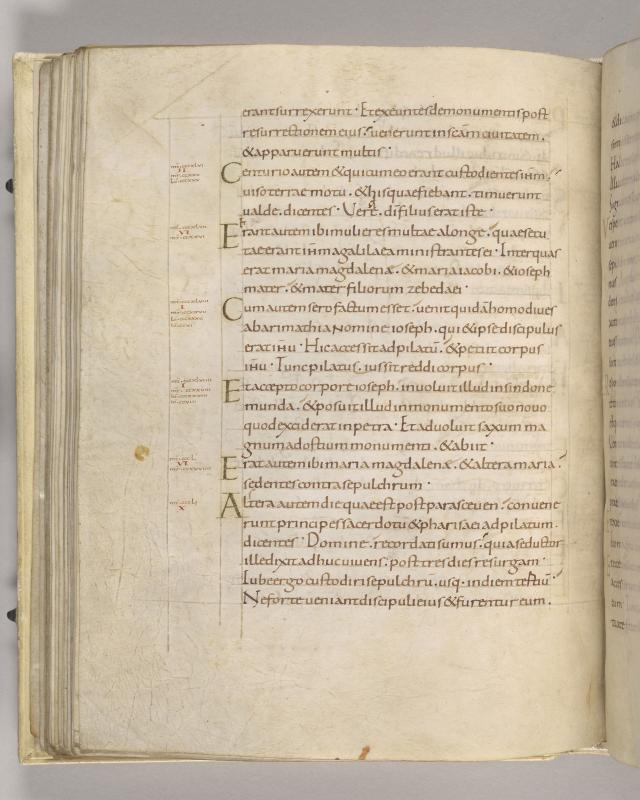 erant surrexerunt · Et exeuntes de monumentis post
resurrectionem eius · uenerunt in scam ciuitatem ·
& apparuerunt multis ·
Centurio autem & qui cum eo erant custodientes ihm ·
uiso terrae motu · & his quae fiebant · timuerunt
ualde · dicentes · Vere · di filius erat iste ·
Erant autem ibi mulieres multae a longe · quae secu
tae erant ihm a galilaea ministrantes ei · Inter quas
erat maria magdalenæ · & maria iacobi · & ioseph
mater · & mater filiorum zebedaei ·
Cum autem sero factum esset · uenit quidā homo diues
ab arimathia nomine ioseph · qui & ipse discipulus
erat ihu · Hic accessit ad pilatū · & petiit corpus
ihu · Tunc pilatus · iussit reddi corpus ·
Et accepto corpore ioseph · inuoluit illud in sindone
munda · & posuit illud in monumento suo nouo
quod exciderat in petra · Et aduoluit saxum ma
gnum ad ostium monumenti · & abiit ·
Erat autem ibi maria magdalenæ · & altera maria ·
sedentes contra sepulchrum ·
Altera autem die quae est post parasceuen · conuene
runt principes sacerdotū & pharisaei ad pilatum ·
dicentes · Domine · recordati sumus · quia seductor
ille dixit adhuc uiuens · post tres dies resurgam ·
Iube ergo custodiri sepulchrū · usq · in diem tertiū ·
Ne forte ueniant discipuli eius & furentur eum ·